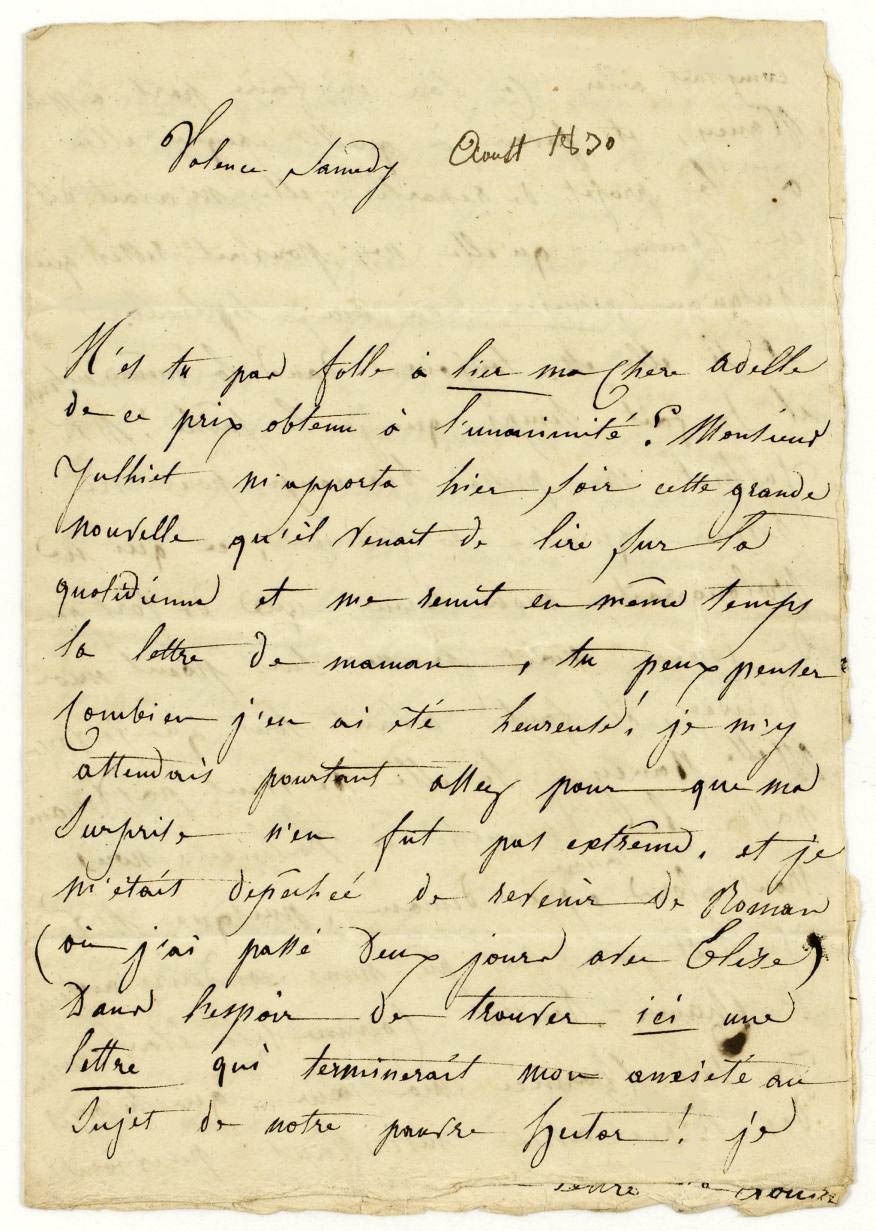 Valence Samedy Aoust 1830
N'es tu pas folle à lier ma Chere adelle
de ce prix obtenu à l'unanimité ? Monsieur
Julhiet m'apporta hier soir cette grande
nouvelle qu'il venait de lire sur la
quotidienne et me remit en même temps
la lettre de maman, tu peux penser
Combien j'en ai été heureuse ! je m'y
attendais pourtant assez pour que ma
Surprise n'en fut pas extrême, et je
m'étais depêcheé de revenir de Roman
(où j'ai passé Deux jours avec Elise)
Dans l'espoir de trouver ici une
lettre qui terminerait mon anxieté au
Sujet de notre pauvre hector ! je